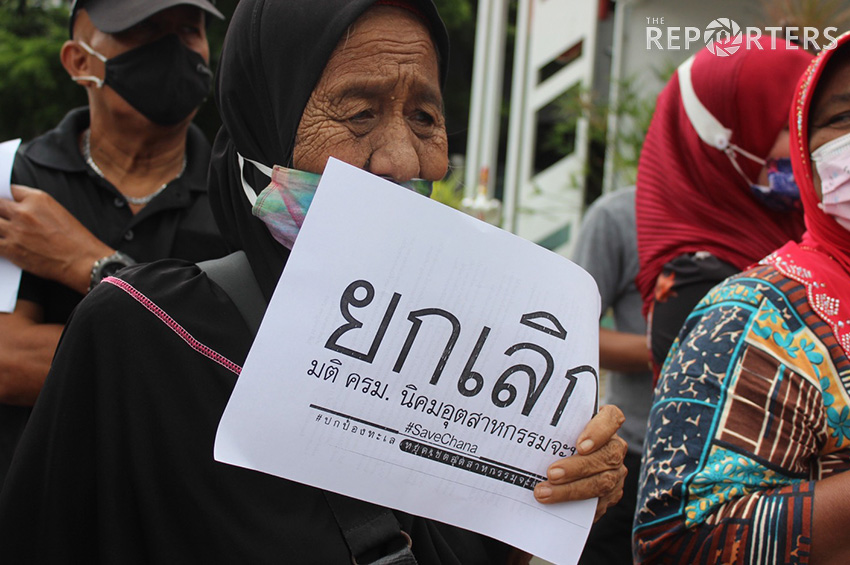 THE
REPORTERS
ยกเลิก
มติ ครม. นิคมอุตสาหกรรมจะ
#SaveChana
#ปกป้องทะเล
หยุดเขตอุตสาหกรรม